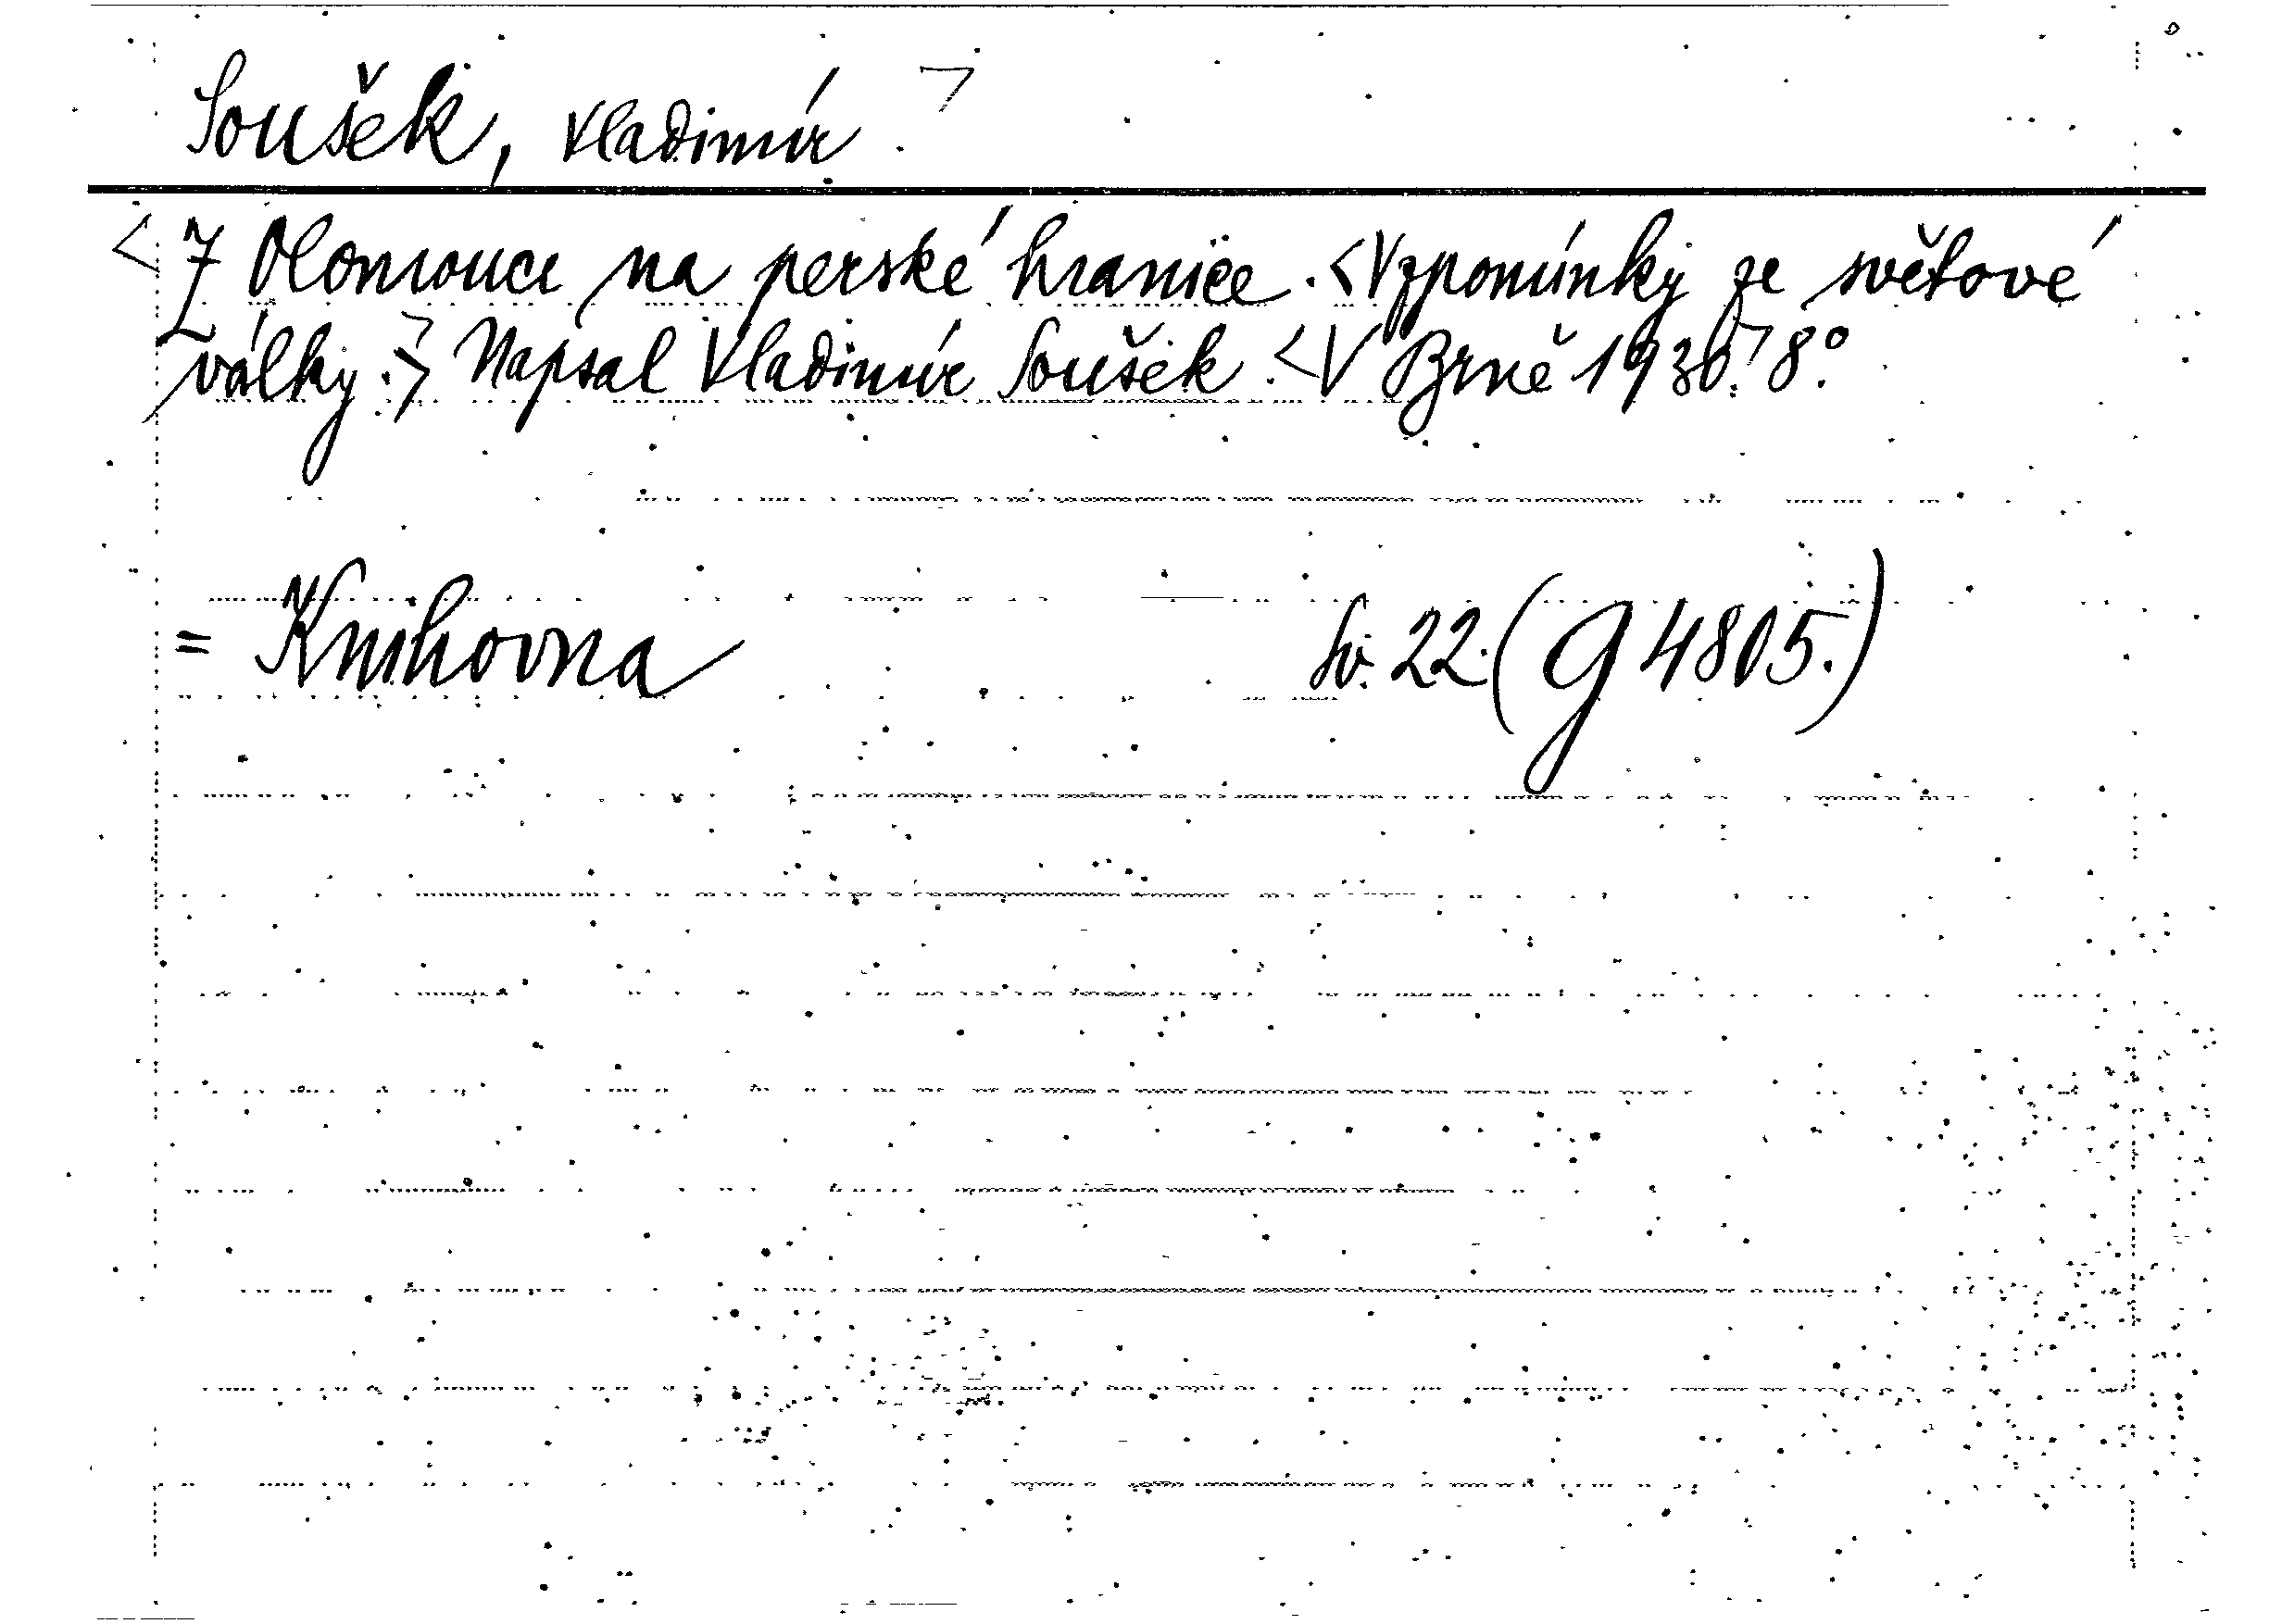 Soušek, Vladimír
<Z Olomouce na perské hranice. <Vzpomínky ze světové
války.> Napsal Vladimír Soušek. <V Brně 1930.> 8°.
= Knihovna Sv. 22. (g 4805.)